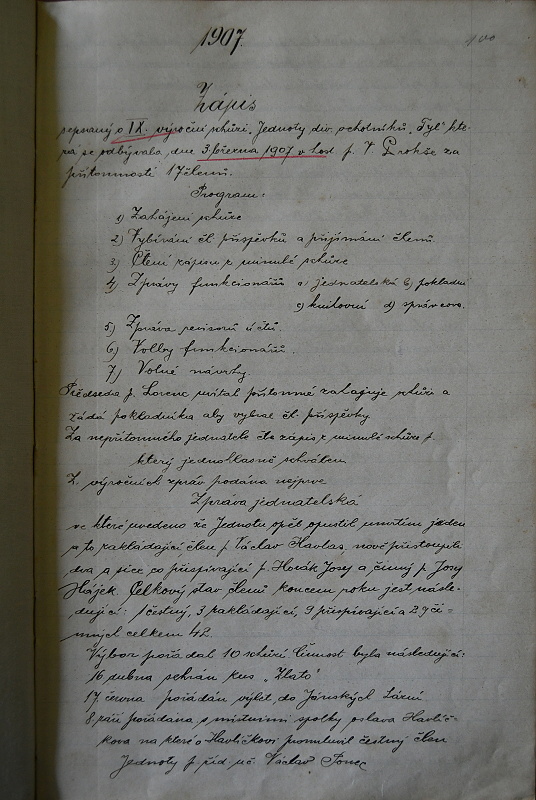 1907.
100
Zápis
sepsaný o IX. výroční schůzi „Jednoty div. ochotníků „Tyl“ kte-
rá se odbývala dne 3 března 1907 v host. p. V. Prokše za
přítomnosti 17 členů.
Program:
1) Zahájení schůze
2) Vybírání čl. příspěvků a přijímání členů.
3) Čtení zápisu z minulé schůze
4) Zprávy funkcionářů a) jednatelská b) pokladní
c) knihovní d) správcova.
5) Zpráva revisorů účtů.
6) Volby funkcionářů.
7) Volné návrhy.
Předseda p. Lorenc uvítal přítomné zahajuje schůzi a
žádá pokladníka aby vybral čl. příspěvky.
Za nepřítomného jednatele čte zápis z minulé schůze p.
který jednohlasně schválen.
Z výročních zpráv podána nejprve
Zpráva jednatelská
ve které uvedeno že Jednotu opět opustil úmrtím jeden
a to zakládající člen p. Václav Havlas, nově přistoupili
dva a sice co přispívající p. Horák Josef a činný p. Josef
Hájek. Celkový stav členů koncem roku jest násle-
dující: 1 čestný, 3 zakládající, 9 přispívající a 29 či-
nných celkem 42.
Výbor pořádal 10 schůzí Činnost byla následující:
16 dubna sehrán kus „Zlato“
17. června pořádán výlet do Jánských Lázní
8 září pořádána s místními spolky oslava Havlíč-
kova na které o Havlíčkovi promluvil čestný člen
Jednoty p. říd. uč. Václav Ponec